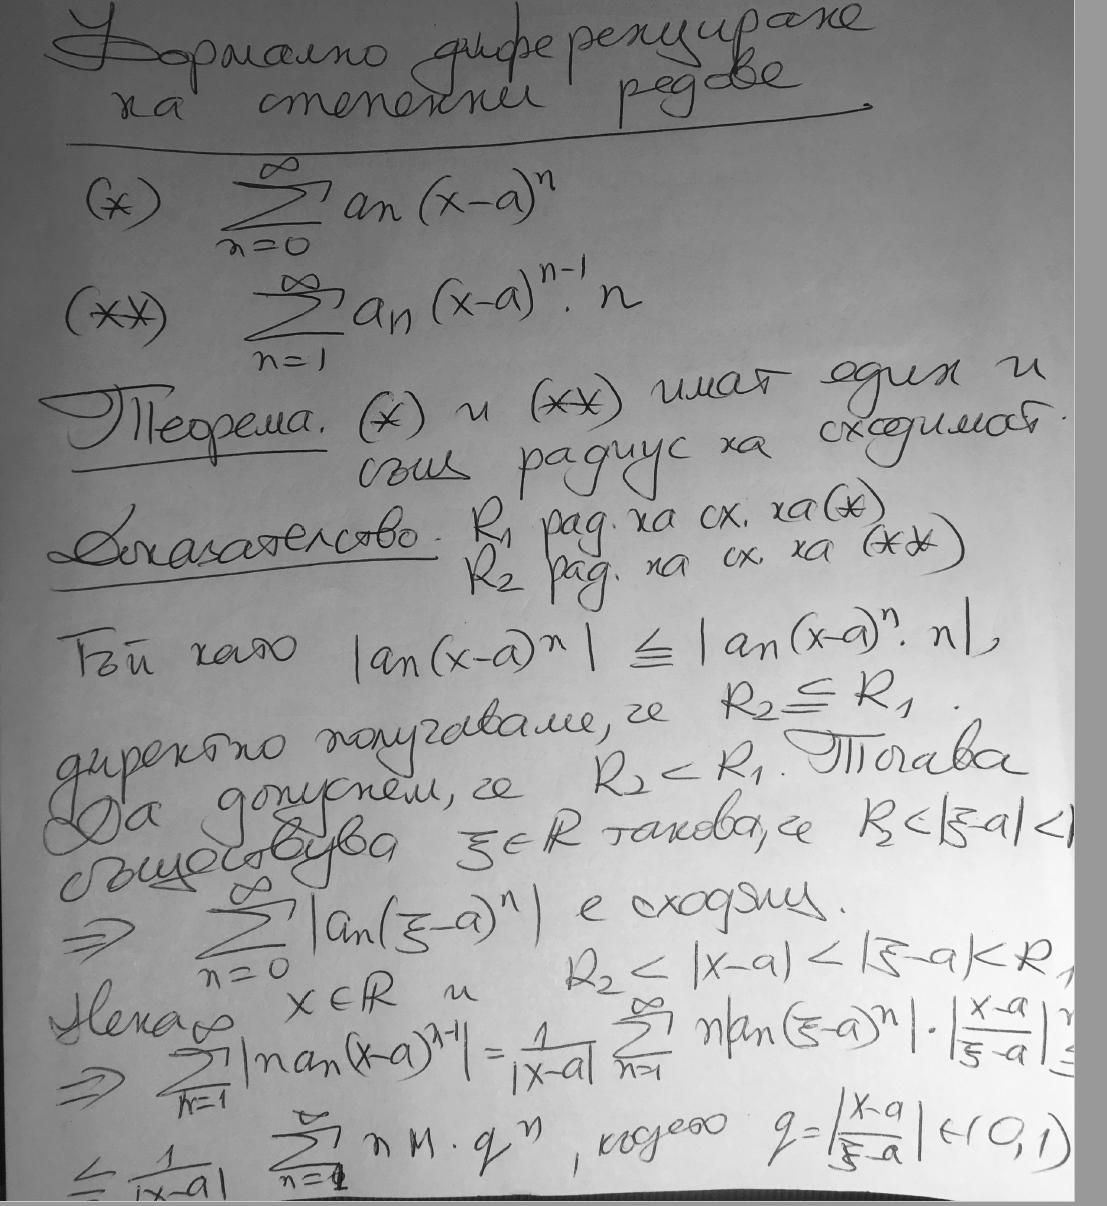 Формално диференциране
на степенни редове
(*) ∑_{n=0}^{∞} an (x-a)^n
(**) ∑_{n=1}^{∞} an (x-a)^{n-1}. n
Теорема. (*) и (**) имат един и
същ радиус на сходимост.
Доказателство. R1 рад. на сх. на (*)
R2 рад. на сх. на (**)
Тъй като |an(x-a)^n| ≤ |an(x-a)^n. n|,
директно получаваме, че R2 ≤ R1.
Да допуснем, че R2 < R1. Тогава
съществува ξ∈R такова, че R2 < |ξ-a| <
⇒ ∑_{n=0}^{∞} |an(ξ-a)^n| е сходящ.
Нека x∈R и R2 < |x-a| < |ξ-a| < R1
⇒ ∑_{n=1}^{∞} |nan(x-a)^{n-1}| = 1/|x-a| ∑_{n=1}^{∞} n|an(ξ-a)^n| . |(x-a)/(ξ-a)|^n ≤
≤ 1/|x-a| ∑_{n=1}^{∞} n M . q^n, където q = |(x-a)/(ξ-a)| ∈ (0,1)